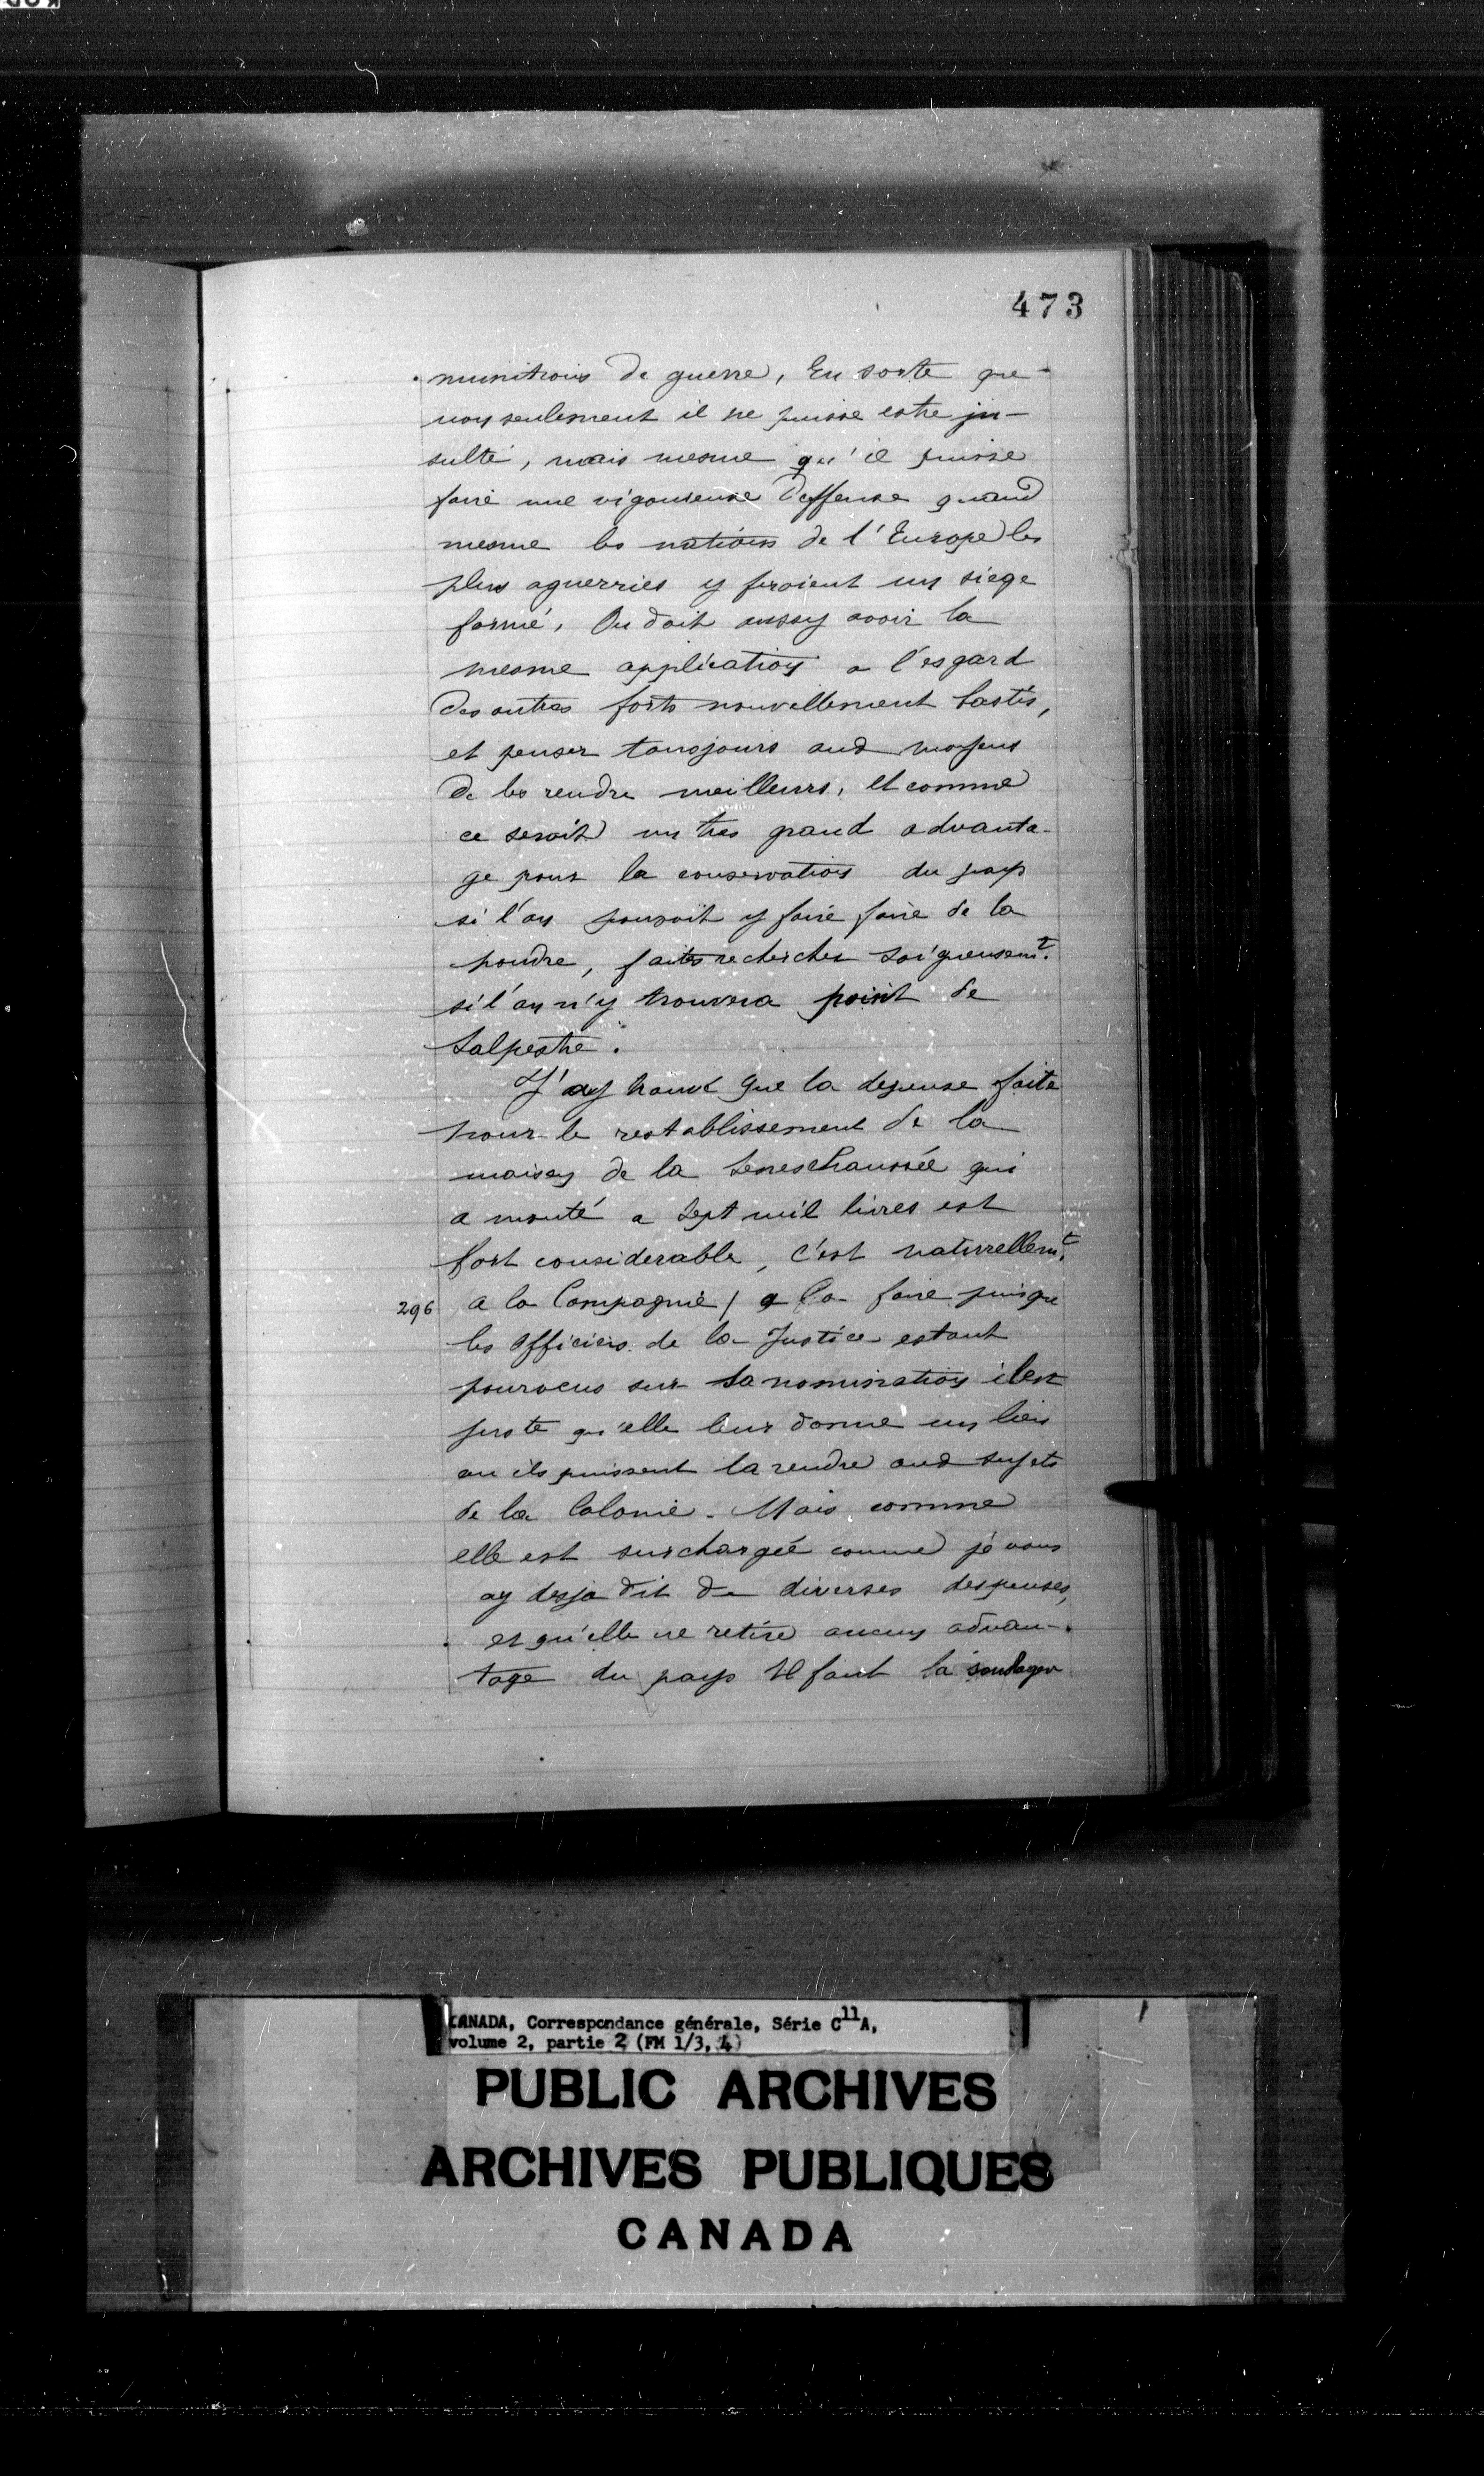 473
munitions de guerre, En sorte que
non seulement il ne puisse estre in-
sulté, mais mesme qu'il puisse
faire une vigoureuse deffense quand
mesme les nations de l'Europe les
plus aguerries y feroient un siege
formé, On doit aussy avoir la
mesme application a l'esgard
des autres forts nouvellement bastis,
et penser tousjours aux moyens
de les rendre meilleurs, et comme
ce seroit un tres grand advanta-
ge pour la conservation du pays
si l'on pouvoit y faire faire de la
poudre, faites rechercher soigneusemt.
si l'on n'y trouvera point de
Salpestre.
J'ay trouvé que la depense faite
pour le restablissement de la
maison de la Seneschaussée qui
a monté a Sept mil livres est
fort considerable, c'est naturellemt.
296 a la Compagnie / a la faire puisque
les officiers de la Justice estant
pourveus sur sa nomination il est
juste qu'elle leur donne un lieu
ou ils puissent la rendre aux sujets
de la Colonie. Mais comme
elle est surchargée comme je vous
ay desja dit de diverses despenses,
et qu'elle ne retire aucun advan-
tage du pays Il faut la soulager
CANADA, Correspondance générale, Série C11A,
volume 2, partie 2 (FM 1/3, 4)
PUBLIC ARCHIVES
ARCHIVES PUBLIQUES
CANADA